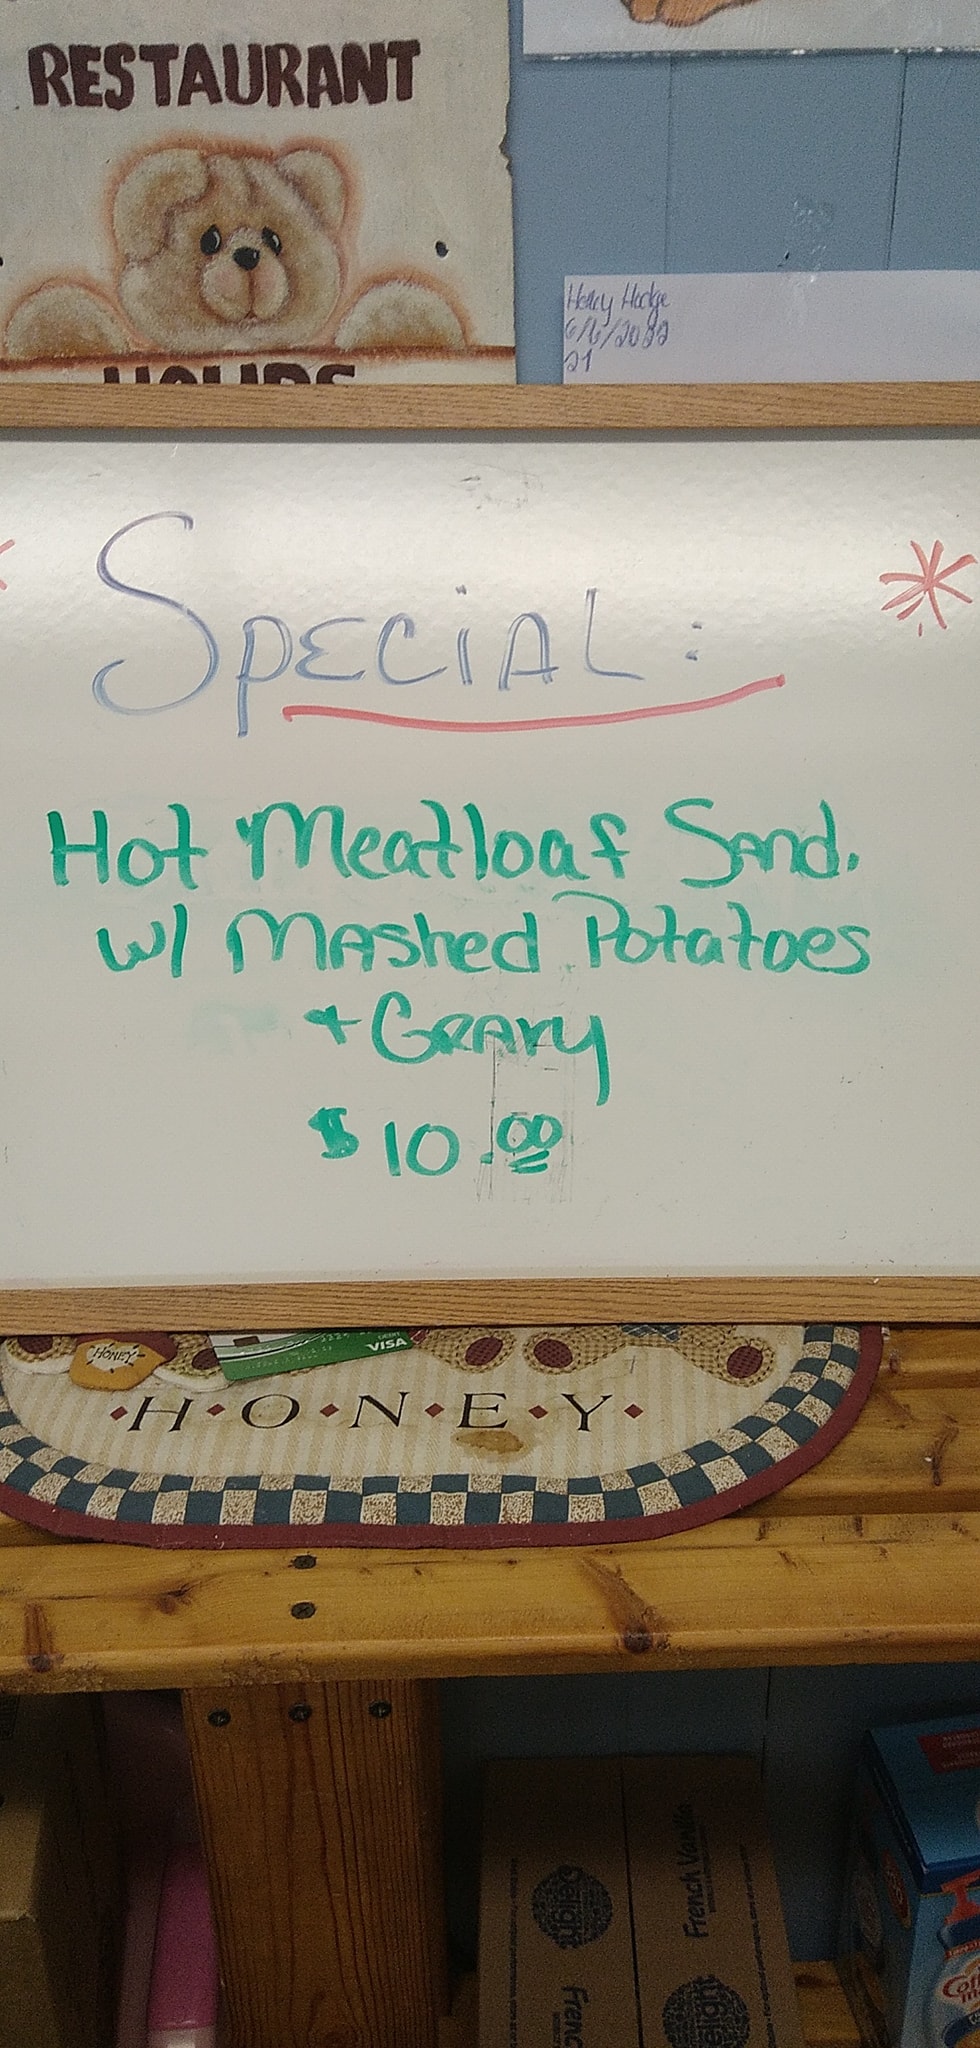 RESTAURANT
HOURS
6/6/2022
21
SPECIAL:
Hot Meatloaf Sand.
w/ Mashed Potatoes
+ Gravy
$10.00
HONEY
VISA
H·O·N·E·Y
Delight
French Vanilla
Delight